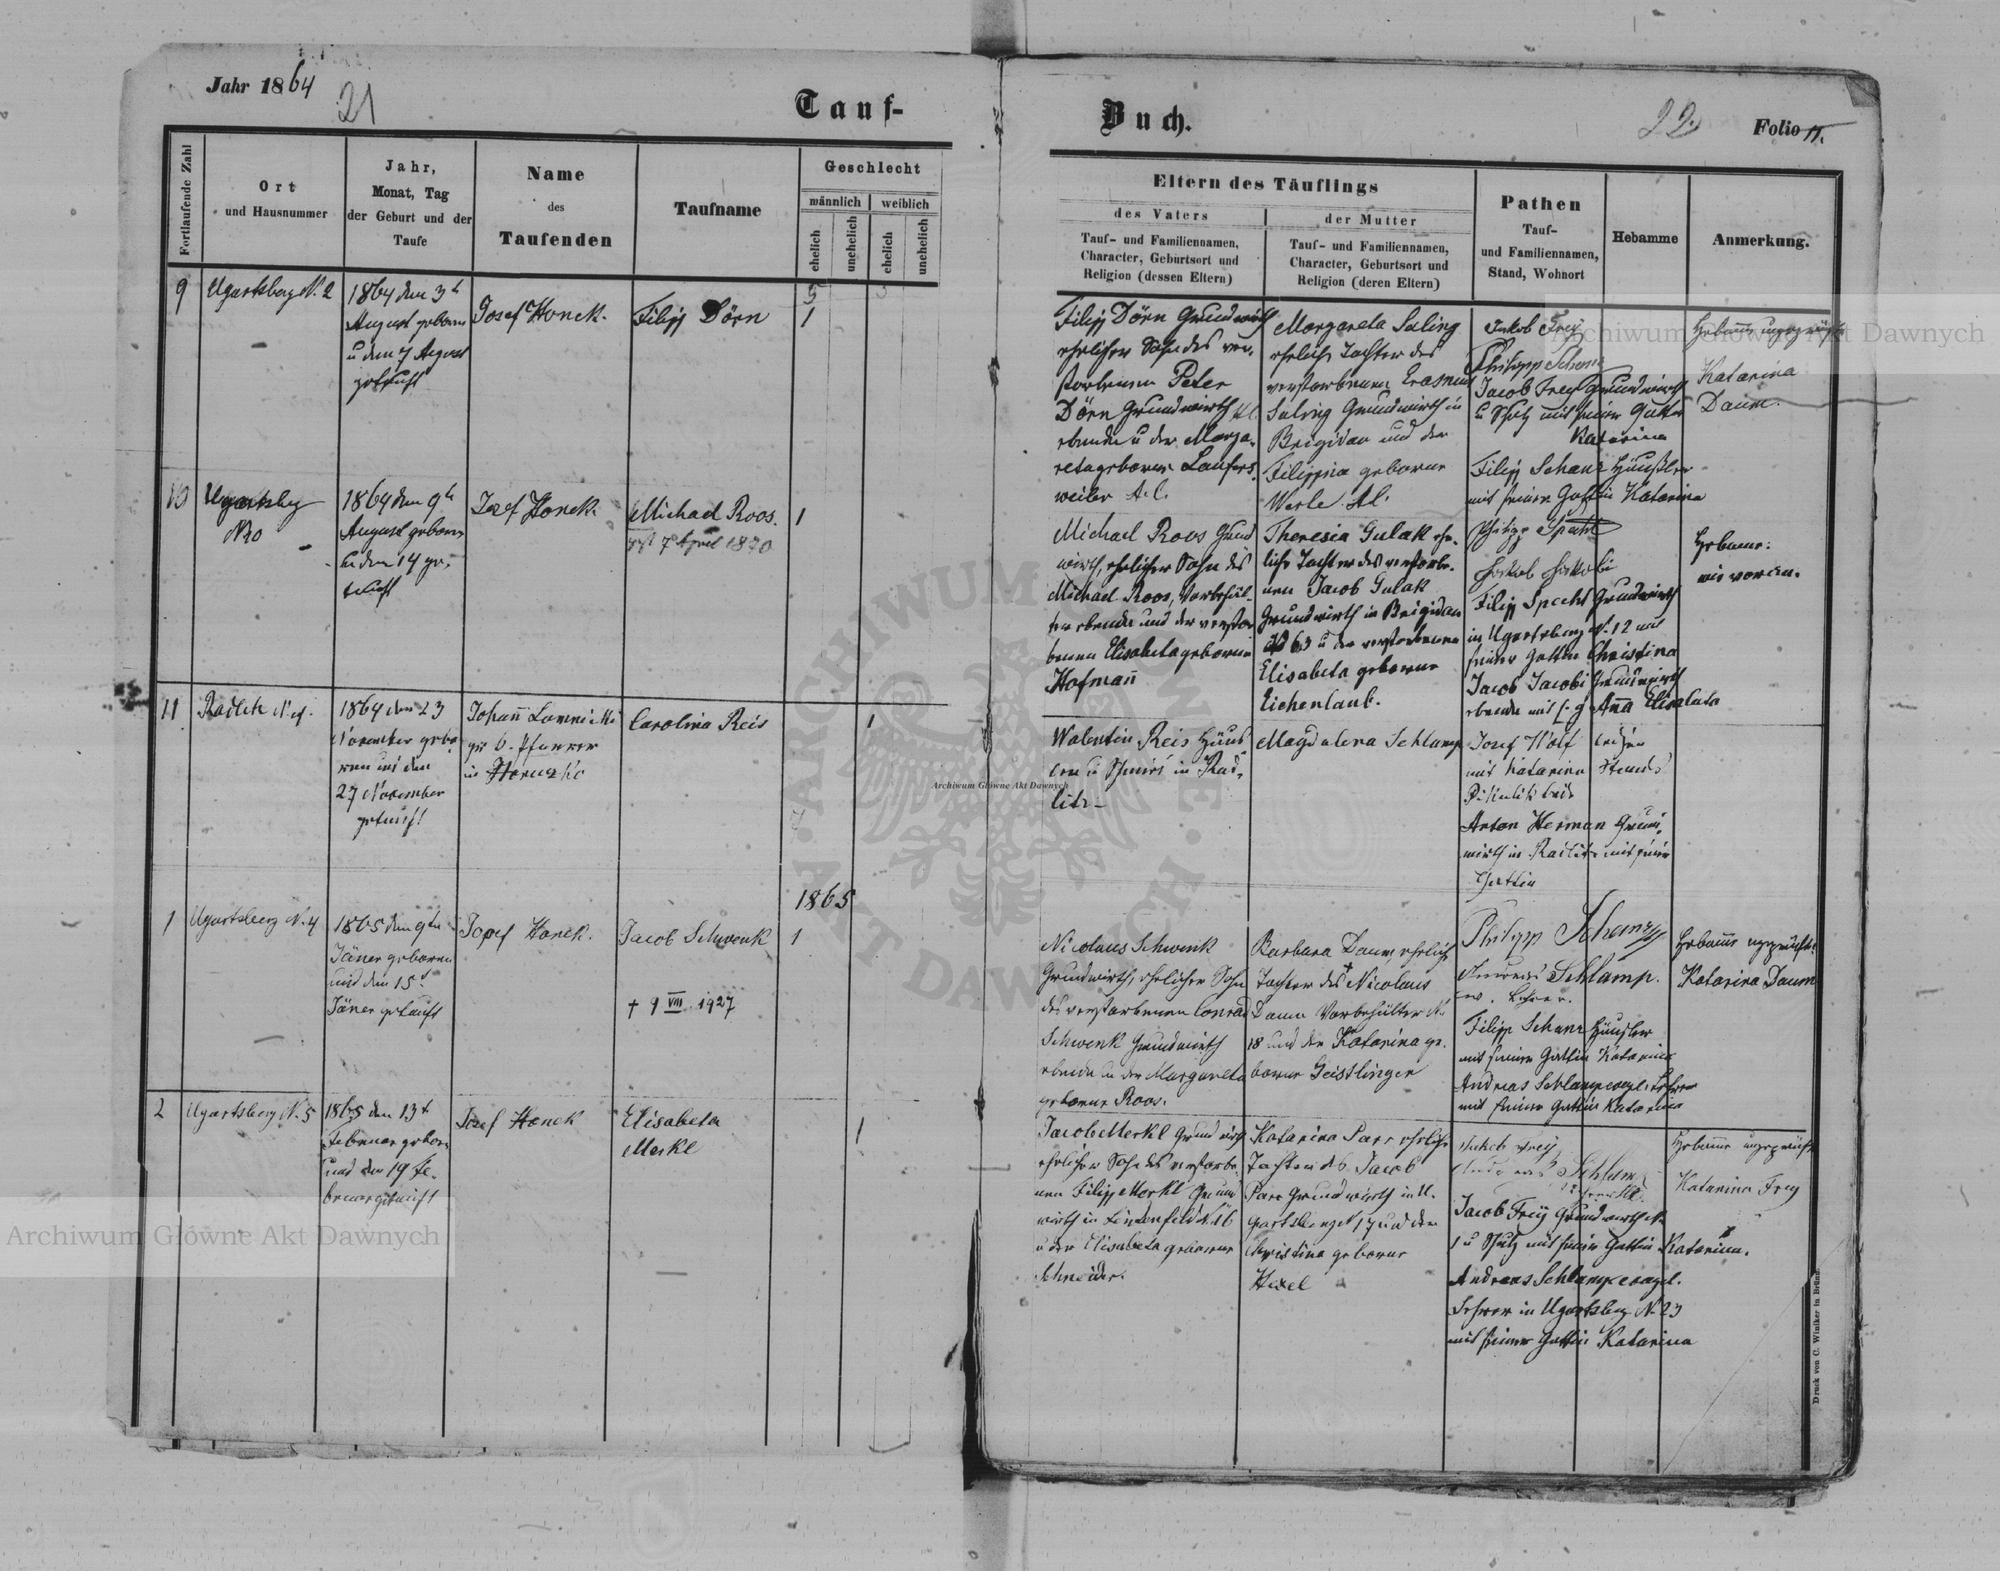 Jahr 1864
21
Tauf-
Buch.
22.
Folio 11.
Fortlaufende Zahl
Ort
und Hausnummer
Jahr,
Monat, Tag
der Geburt und der
Taufe
Name
des
Taufenden
Taufname
Geschlecht
männlich
weiblich
ehelich
unehelich
ehelich
unehelich
Eltern des Täuflings
des Vaters
Tauf- und Familiennamen,
Character, Geburtsort und
Religion (dessen Eltern)
der Mutter
Tauf- und Familiennamen,
Character, Geburtsort und
Religion (deren Eltern)
Pathen
Tauf-
und Familiennamen,
Stand, Wohnort
Hebamme
Anmerkung.
9
Ugartsberg N. 2
1864 den 3t
August geboren
u den 7 August
getauft
Josef Honek.
Filipp Dörn
1
Filipp Dörn Grundwirth
ehelicher Sohn des ver-
storbenen Peter
Dörn Grundwirth
ebenda u der Marga-
reta geborene Laufers-
weiler A.C.
Margareta Saling
eheliche Tochter des
verstorbenen Erasmus
Saling Grundwirth in
Brigidau und der
Filippina geborene
Werle A.C.
Jakob Frey
Philipp Schanz
Jacob Frey Grundwirth
u Schulz mit seiner Gattin
Katarina
Filipp Schanz Häusler
mit seiner Gattin Katarina
Hebamme ungeprüfte
Katarina
Daum.
10
Ugartsberg
1864 den 9t
August geboren
u den 14 ge-
tauft
Josef Honek
Michael Roos.
gest 7 April 1870
1
Michael Roos Grund
wirth, ehelicher Sohn des
Michael Roos, Vorbehäl-
ter ebenda und der verstor
benen Elisabeta geborene
Hofmann
Theresia Gulak ehe-
liche Tochter des verstorbe-
nen Jacob Gulak
Grundwirth in Brigidau
N 63 u der verstorbenen
Elisabeta geborene
Eichenlaub.
Philipp Specht
Jakob Jakobi
Filipp Specht Grundwirth
in Ugartsberg N. 12 mit
seiner Gattin Christina
Jacob Jacobi Grundwirth
ebenda mit s. g Anna Elisabeta
Hebamme:
wie voran.
11
1864 den 23
November gebo
ren und den
27 November
getauft
Johann Lomnicki
in Horucko
Carolina Reis
1
Walentin Reis Häus
ler u Schmid in Rad-
litz –
Magdalena Schlamp
Josef Wolf
mit Katarina
Anton Herman Grund-
wirth in Radlitz mit seine
Gattin
1865
1
Ugartsberg N. 4
1865 den 9ten
Jäner geboren
und den 15t
Jäner getauft
Josef Honek.
Jacob Schwenk
† 9 VIII 1927
1
Nicolaus Schwenk
Grundwirth, ehelicher Sohn
des verstorbenen Conrad
Schwenk Grundwirth
ebenda u der Margareta
geborene Roos.
Barbara Daum, eheliche
Tochter des † Nicolaus
Daum Vorbehälter N.
18 und der Katarina ge-
borene Geistlinger
Philipp Schanz
Andreas Schlamp.
ev. Lehrer.
Filipp Schanz Häusler
mit seiner Gattin Katarina
Andreas Schlamp evagl. Lehrer
mit seiner Gattin Katarina
Hebamme ungeprüfte
Katarina Daum
2
Ugartsberg N. 5
1865 den 13t
Februar gebore
und den 19 Fe-
bruar getauft
Josef Honek
Elisabeta
Merkl
1
Jacob Merkl Grundwirth
ehelicher Sohn des verstorbe-
nen Filipp Merkl Grund
wirth in Lindenfeld N. 16
u der Elisabeta geborene
Schneider.
Katarina Parr eheliche
Tochter des Jacob
Parr Grundwirth in U-
gartsberg N 17 und der
Christina geborne
Hexel
Jakob Frey
Andreas Schlamp
Jacob Frey Grundwirth N.
1 u Schulz mit seiner Gattin Katarina.
Andreas Schlamp evagel.
Lehrer in Ugartsberg N. 23
mit seiner Gattin Katarina
Hebamme ungeprüft
Katarina Frey
Druck von C. Winiker in Brünn.
Archiwum Główne Akt Dawnych
Archiwum Główne Akt Dawnych
Archiwum Główne Akt Dawnych
ARCHIWUM GŁÓWNE AKT DAWNYCH